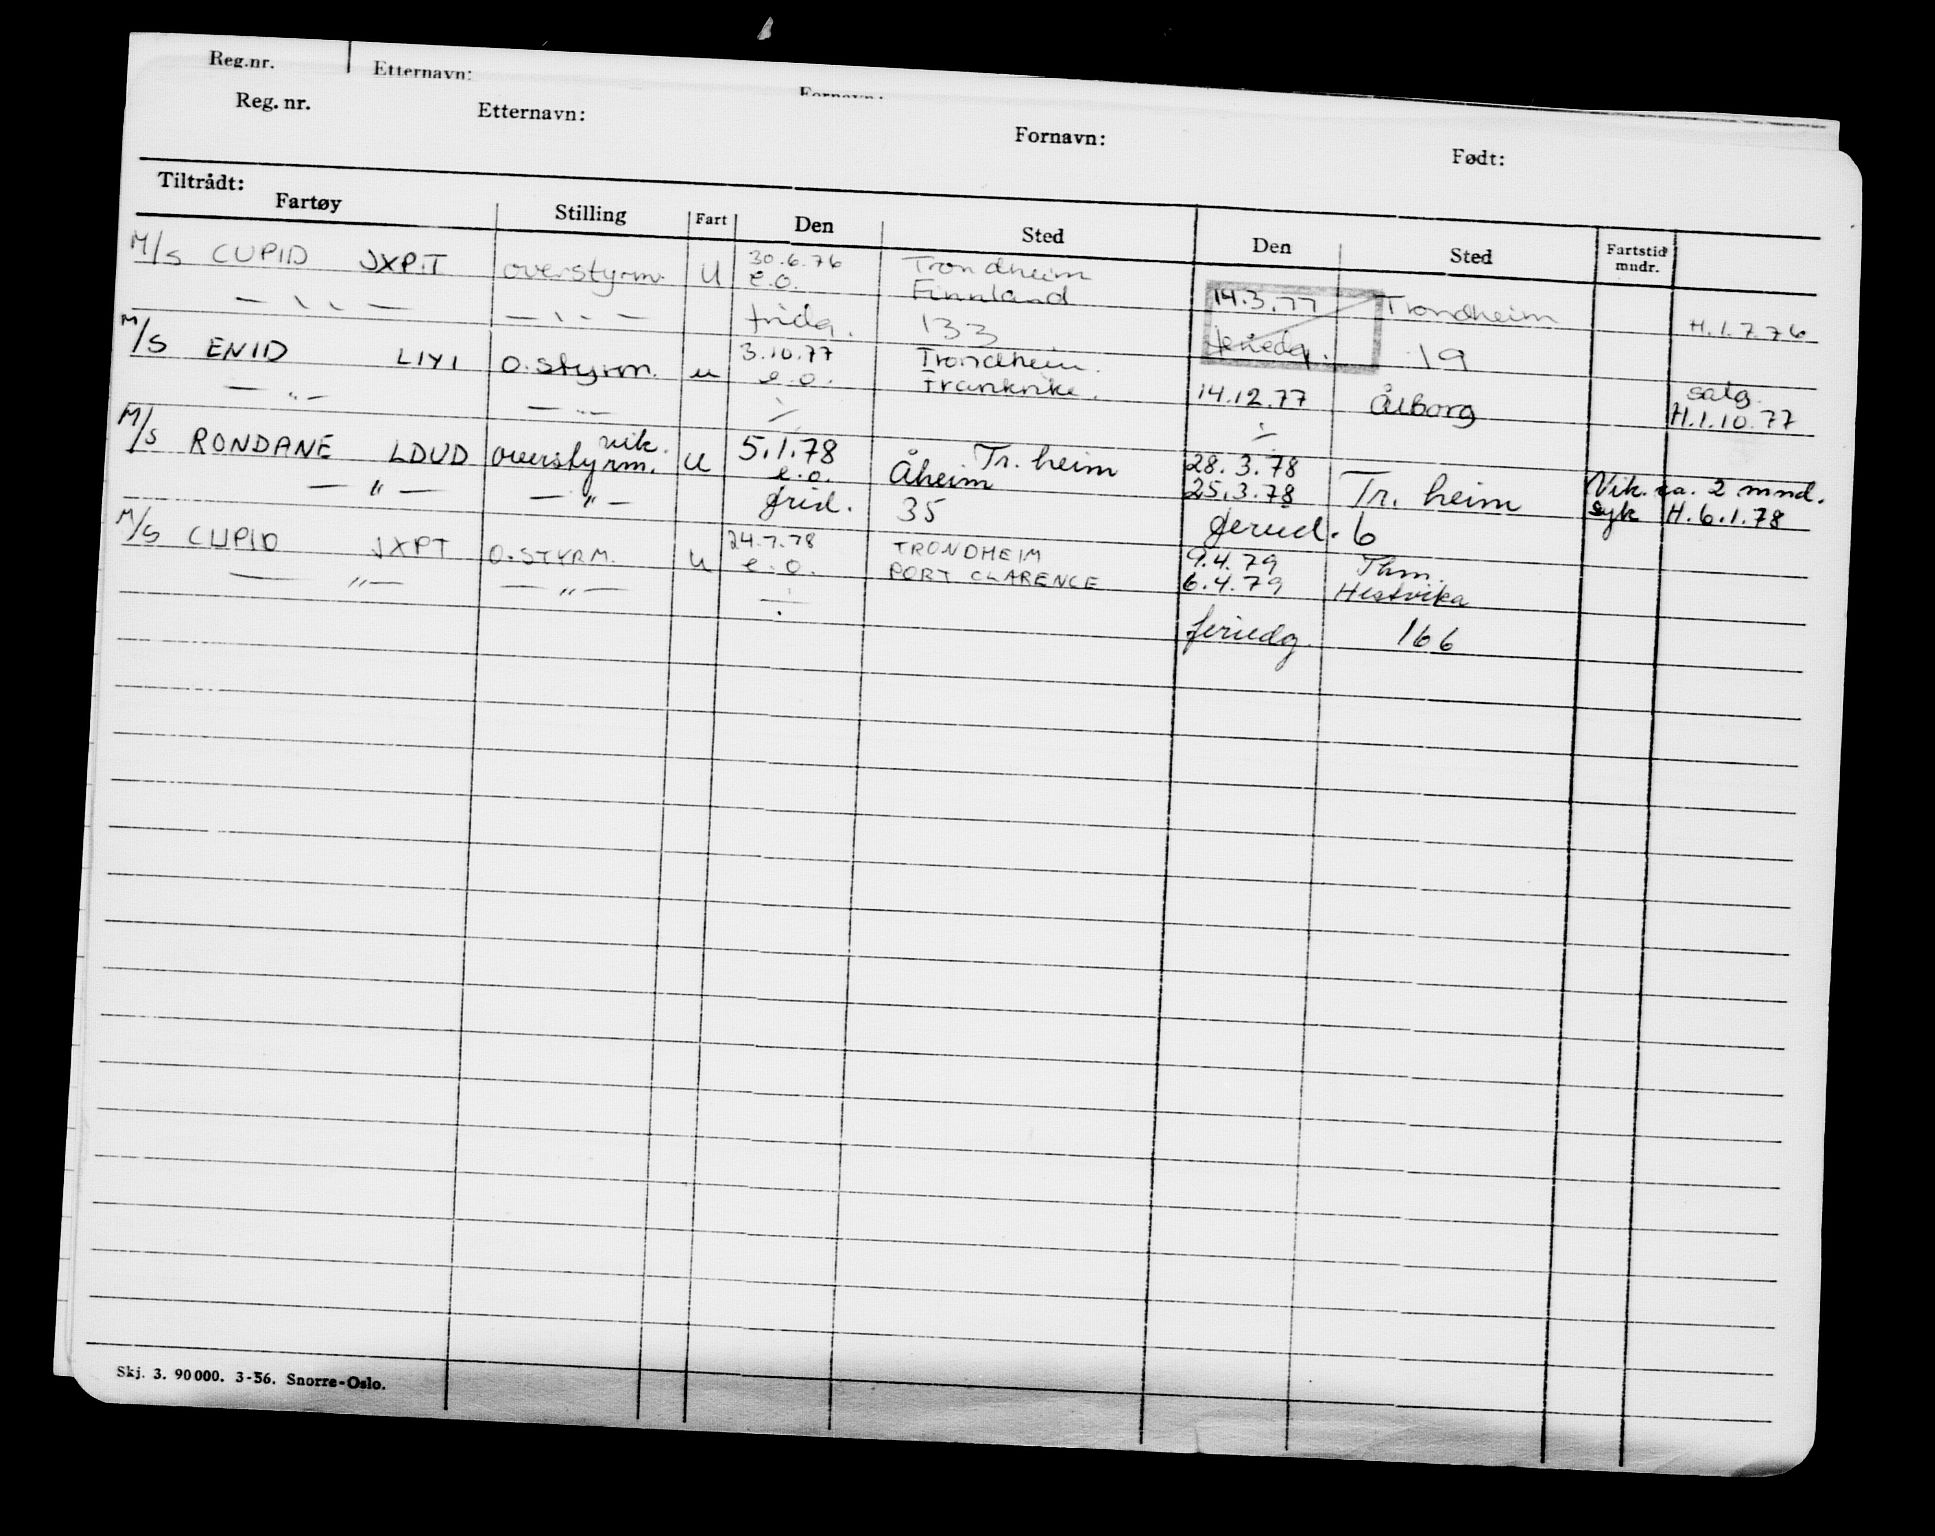 Reg.nr. Etternavn: Fornavn:
Reg. nr. Etternavn: Fornavn: Født:
Tiltrådt:
Fartøy Stilling Fart Den Sted Den Sted Fartstid mndr.
M/S CUPID JXPT overstyrm. U 30.6.76 Trondheim
e.o. Finnland 14.3.77 Trondheim H.1.7.76
— " — — " — frida. 133 feriedg. 19
M/S ENID LIYI O.styrm. u 3.10.77 Trondheim.
e.o. Frankrike. 14.12.77 Ålborg salg. H.1.10.77
— " — — " — ÷ ÷
M/S RONDANE LDUD vik. overstyrm. U 5.1.78 Tr. heim 28.3.78
e.o. Åheim 25.3.78 Tr. heim Vik. ca. 2 mnd. syk H.6.1.78
— " — — " — frid. 35 feried. 6
M/S CUPID JXPT O.STYRM. u 24.7.78 TRONDHEIM 9.4.79 Thm.
e.o. PORT CLARENCE 6.4.79 Hestvika
— " — — " — ÷
feriedg. 166
Skj. 3. 90 000. 3-56. Snorre-Oslo.